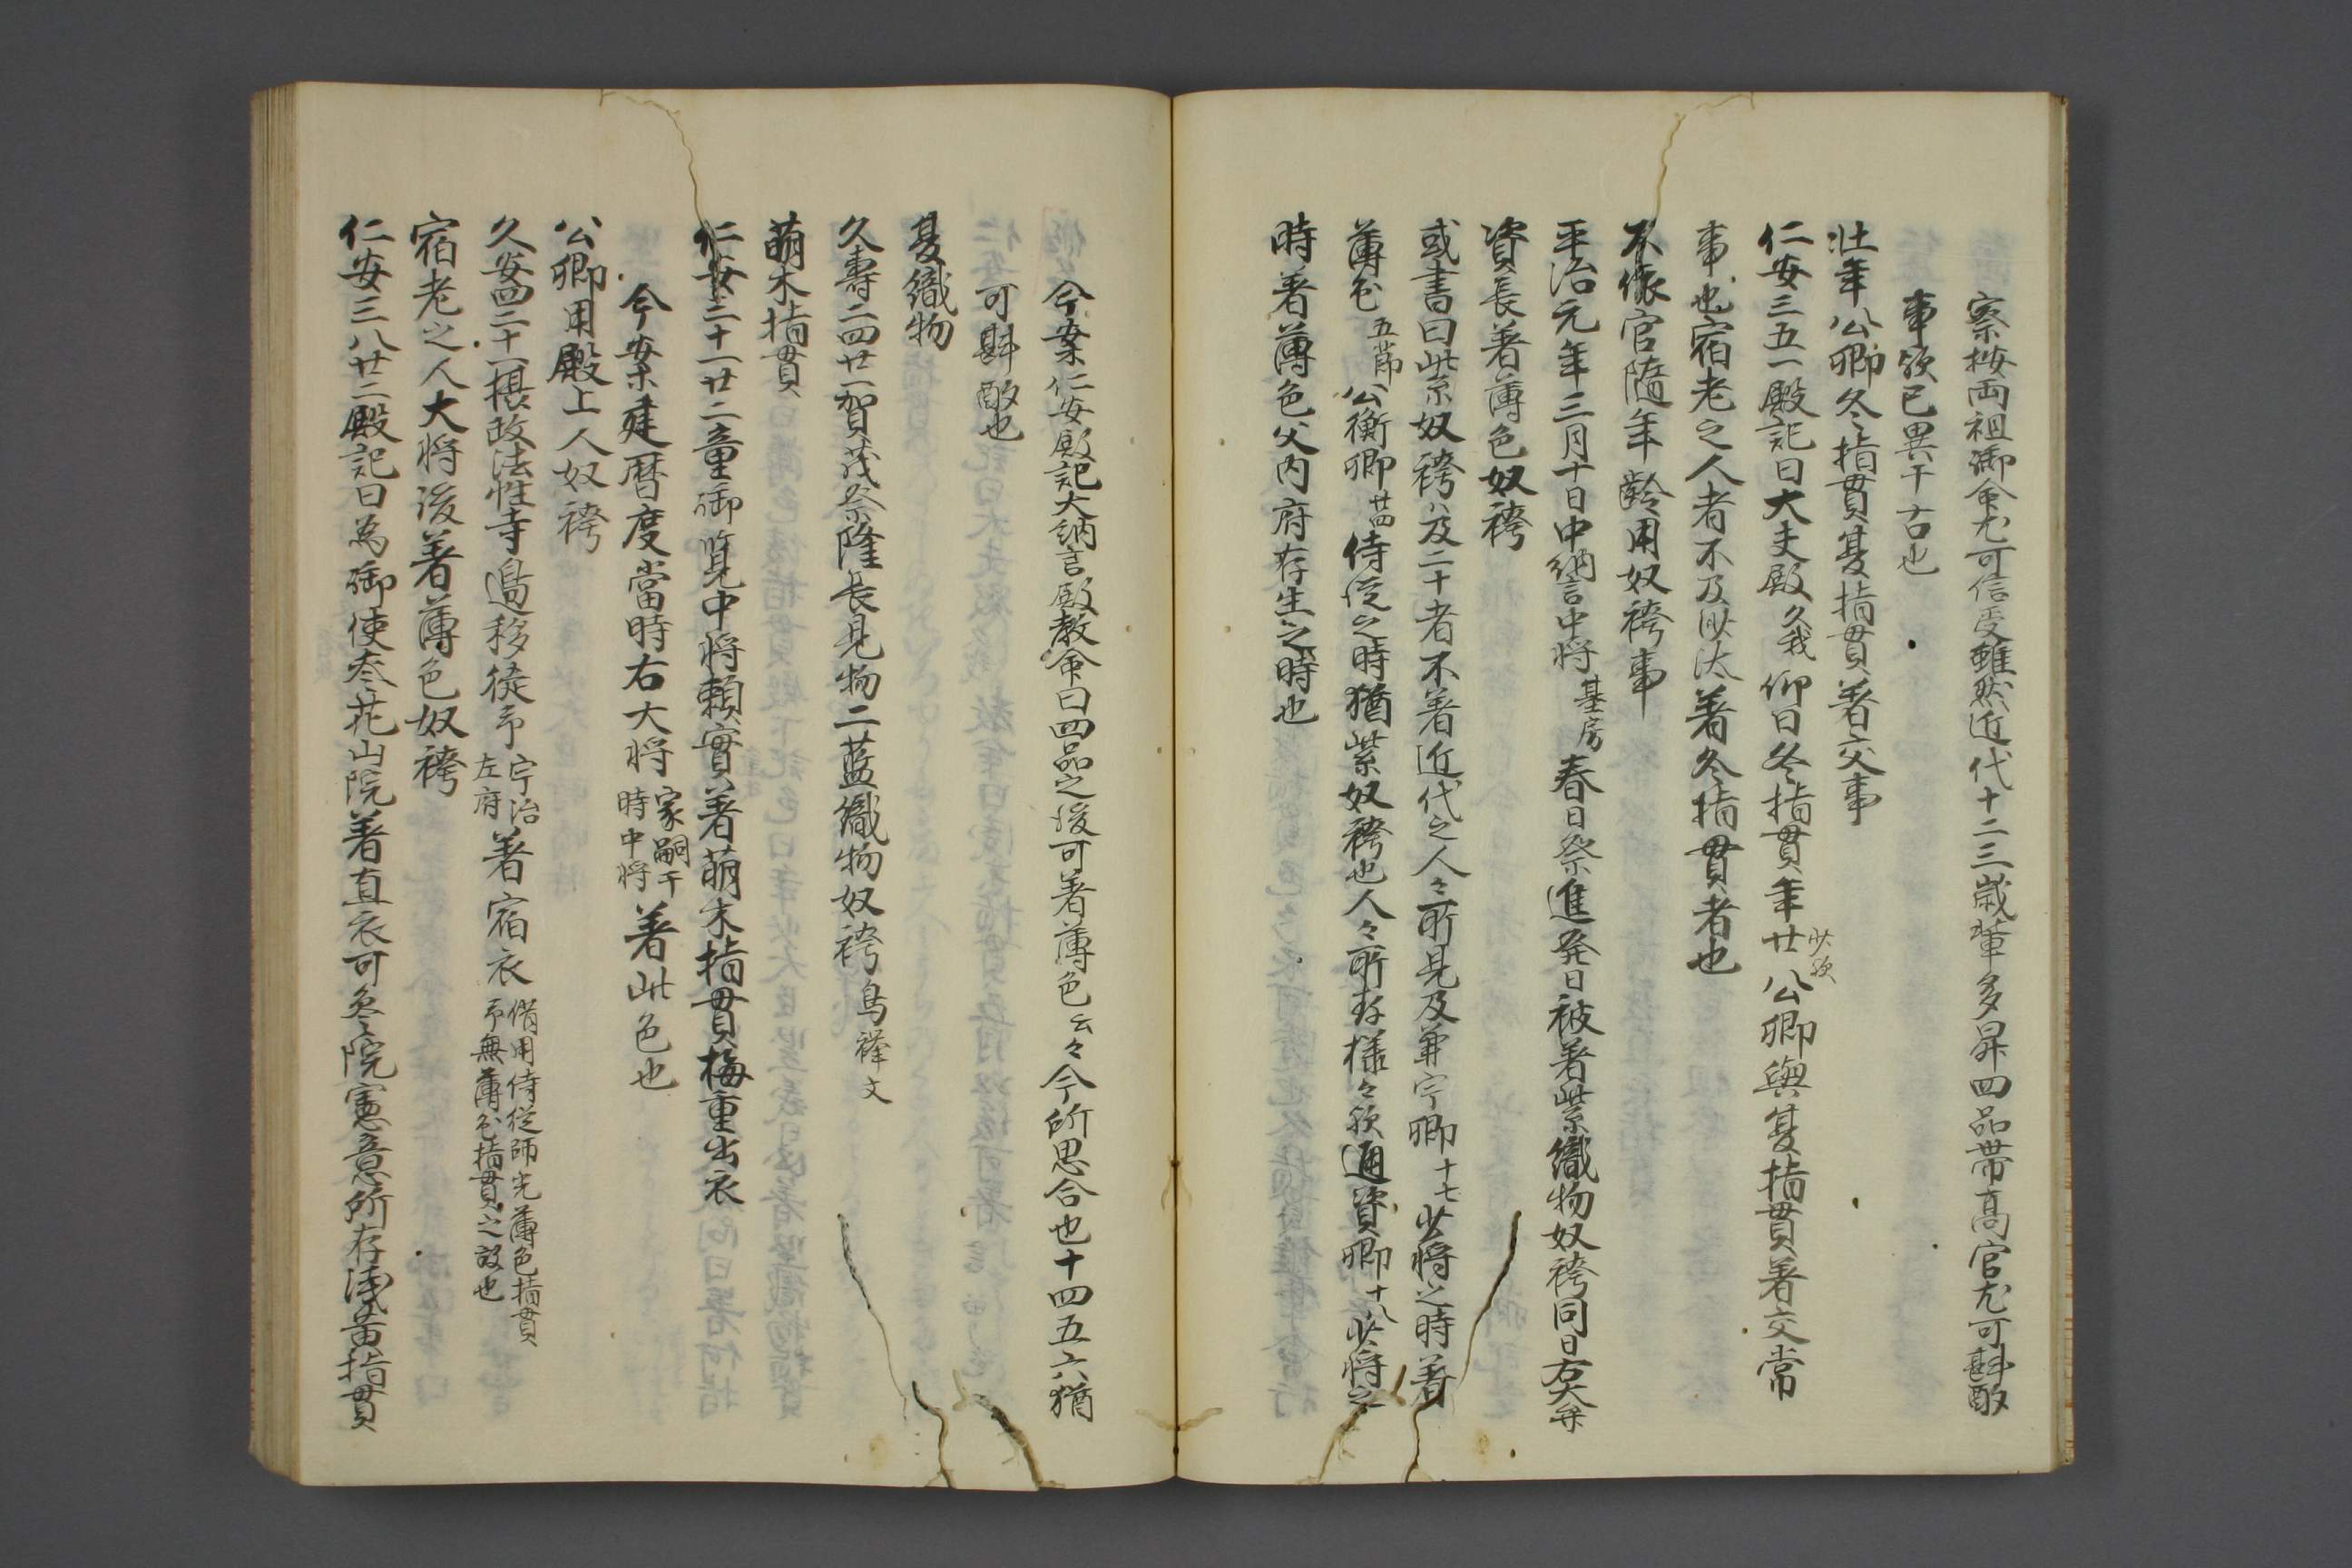 案按両祖御命尤可信受雖然近代十二三歳輩多昇四品帯高官尤可斟酌
事欤已異于古也
壮年公卿冬指貫夏指貫著交事
仁安三五一殿記曰大夫殿久我仰曰冬指貫年廿少欤公卿與夏指貫著交常
事也宿老之人者不及沙汰著冬指貫者也
不依官随年齢用奴袴事
平治元年三月十日中納言中将基房春日祭進発日被著紫織物奴袴同日右大弁
資長著薄色奴袴
或書曰紫奴袴ハ及二十者不著近代之人々所見及兼宁卿十七少将之時著
薄色五節公衡卿廿四侍従之時猶紫奴袴也人々所存様々欤通資卿十八少将之
時著薄色父内府存生之時也
今案仁安殿記大納言殿教命曰四品之後可著薄色云々今所思合也十四五六猶
可斟酌也
夏織物
久寿二四廿一賀茂祭隆長見物二藍織物奴袴鳥襷文
萌木指貫
仁安三十一廿二童御覧中将頼實著萌木指貫梅重出衣
今案建暦度當時右大将家嗣于時中将著此色也
公卿用殿上人奴袴
久安四二十一摂政法性寺邉移徙予宁治左府著宿衣借用侍従師光薄色指貫予無薄色指貫之故也
宿老之人大将後著薄色奴袴
仁安三八廿二殿記曰為御使参花山院著直衣可参院憲意所存浅黄指貫